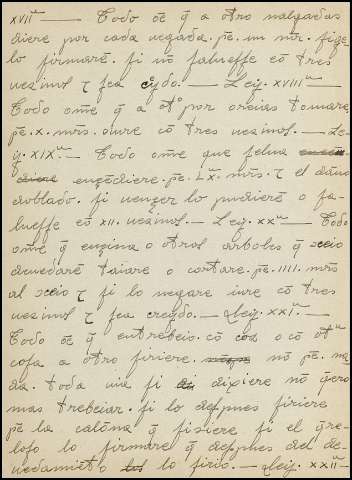 XVIIᵃ — Todo oē q̄ a otro nalgadas
diere por cada uegada. pē. un mr̄. si ge
lo firmarē. si nō salueſſe cō tres
uezinos ⁊ sea c̃ydo. — Ley. XVIIIᵃ —
Todo om̄e q̄ a otº por oreias tomare
pē. x. mr̄s. iure cō tres uezinos. — Le-
y. XIXᵃ. — Todo ome que selua
ençēdiere. pē. Lx. mr̄s. ⁊ el dāno
doblado. si uençer lo pudierē o sa-
lueſſe cō XII. uezinos. — Ley. XXᵃ — Todo
om̄e q̄ enzina o otros arboles q̄
deuedarē taiare o cortare. pē. IIII. mr̄s
al ⁊ si lo negare iure cō tres
uezinos ⁊ sea creydo. — Ley. XXIᵃ. —
Todo oē q̄ en trebeio. cō cos o cō otᵃ
cosa a otro firiere. nō pē. na-
da. toda uia si dixiere nō q̄ero
mas trebeiar. si lo despues firiere
pē la calōna q̄ fiziere si el q̄re-
loso lo firmare q̄ despues del de-
uedamiēto lo firio. — Ley. XXII —